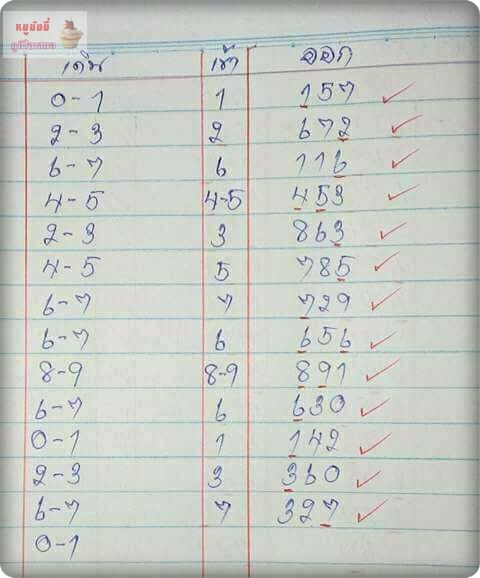 หมูบัณฑิ์
เดิน เข้า ออก
0-1 1 157
2-3 2 672
6-7 6 116
4-5 4-5 453
2-3 3 863
4-5 5 785
6-7 7 729
6-7 6 656
8-9 8-9 891
6-7 6 630
0-1 1 142
2-3 3 360
6-7 7 327
0-1